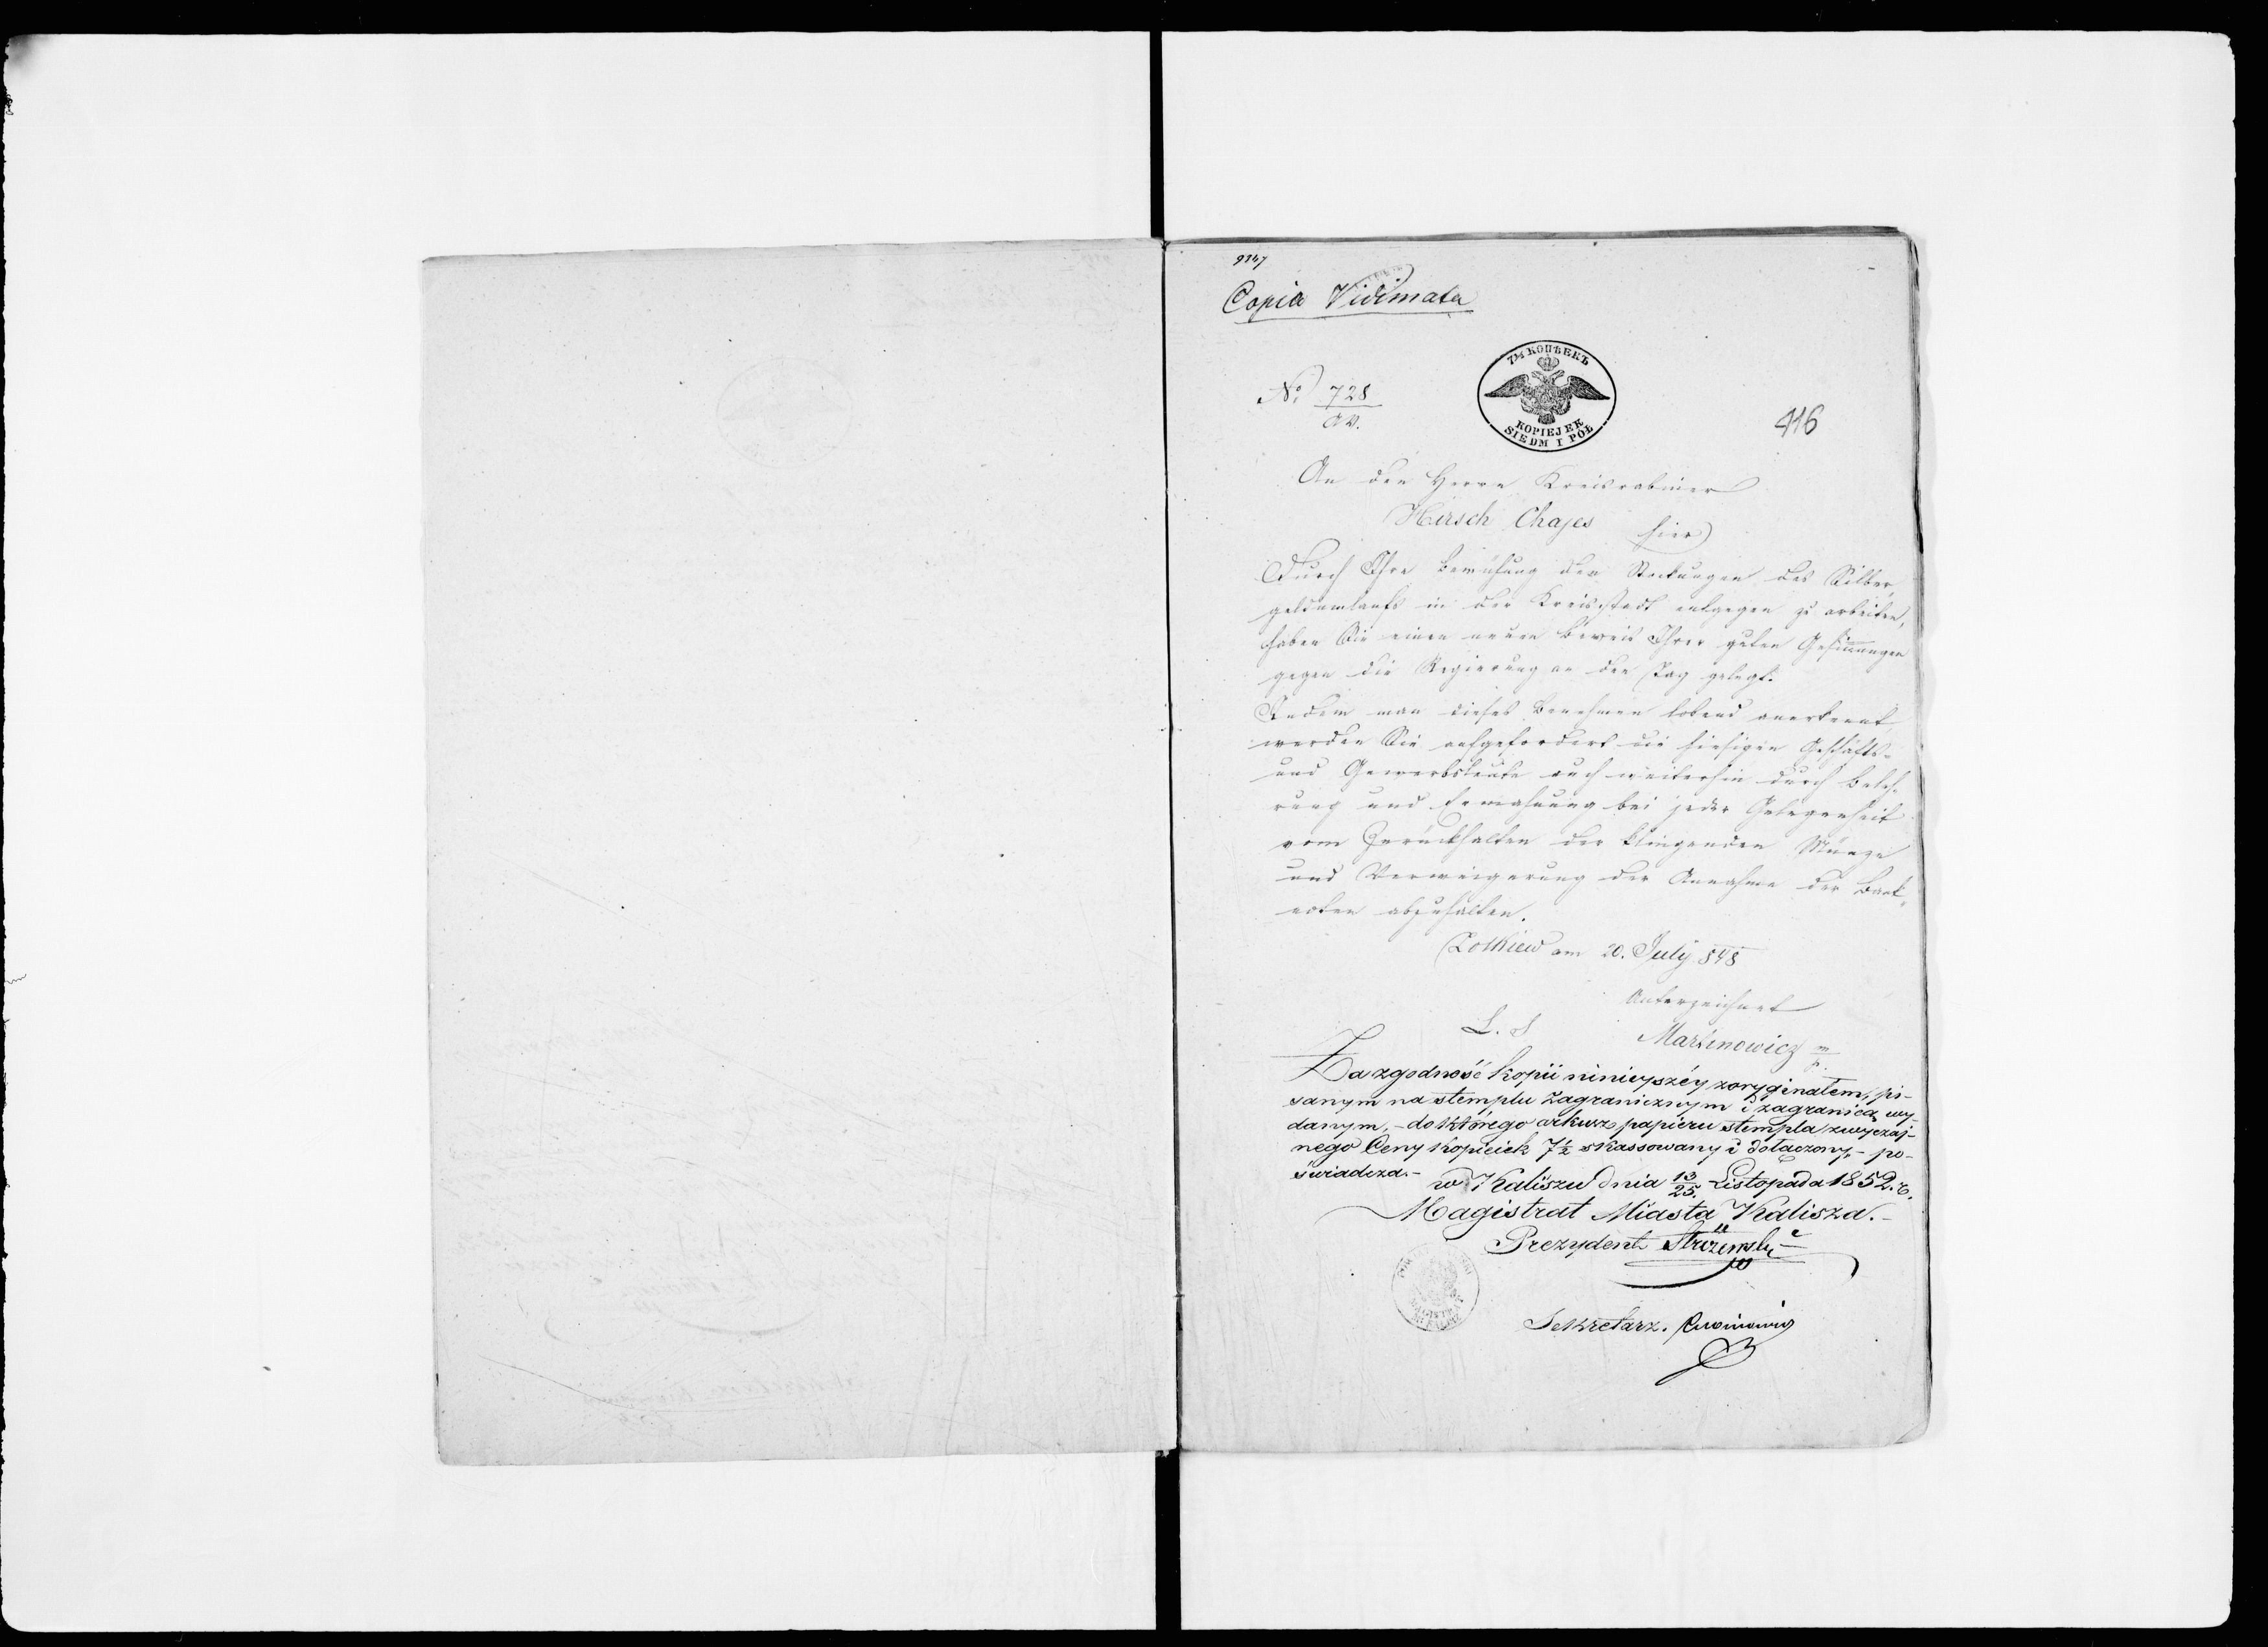 9247
Copia Vidimata
7½ КОПѢЕКЪ
KOPIEJEK
SIEDM I PÓŁ
No 728
av.
416
An den Herrn Kreisrabiner
Hirsch Chajes hier
Durch Ihre Bemühung den Stockungen des Silber„
geldumlaufs in der Kreisstadt entgegen zu arbeiten,
haben Sie einen neuen Beweis Ihrer guten Gesinnungen
gegen die Regierung an den Tag gelegt.
Indem man dieses Benehmen lobend anerkennt
werden Sie aufgefordert die hiesigen Geschäfts-
und Gewerbsleute auch weiterhin durch Beleh-
rung und Ermahnung bei jeder Gelegenheit
vom Zurückhalten der klingenden Münze
und Verweigerung der Annahme der Bank„
noten abzuhalten.
Zolkiew am 20. July 848
Unterzeichnet
L. S Martinowicz m/p.
Za zgodność kopii niniejszéy z oryginałem, pi-
sanym na stemplu zagranicznym i zagranicą wy-
danym, - do którego arkusz papieru stempla zwyczaj-
nego Ceny kopieiek 7½ skassowany i dołączony, - po-
świadcza. -
w Kaliszu dnia 13/25. Listopada 1852. r.
Magistrat Miasta Kalisza. -
Prezydent
MAGISTRAT
Sekretarz.